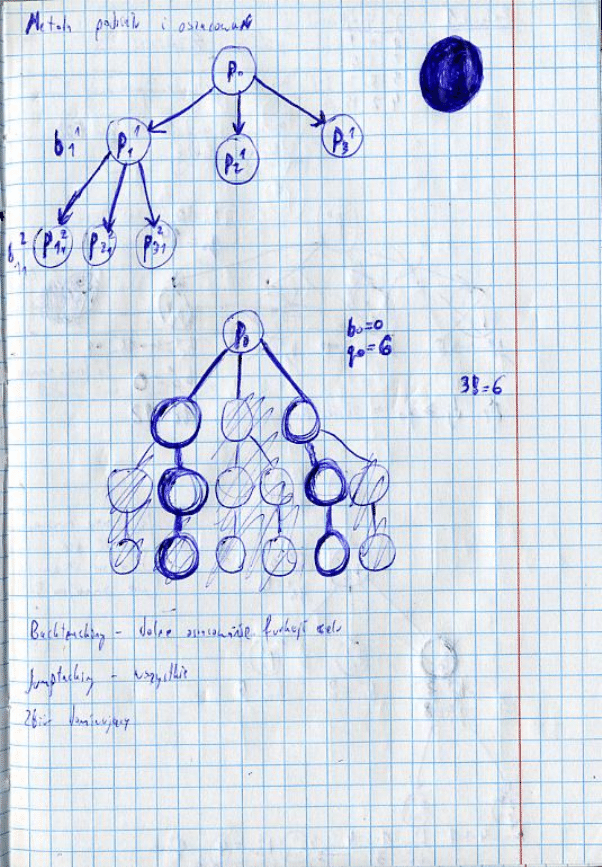 Metoda podziału i oszacowań
P₀
b₁¹ P₁¹ P₂¹ P₃¹
b₁₁² P₁₁² P₂₁² P₃₁²
P₀
b₀=0
q₀=6
3!=6
Backtracking - dolne oszacowanie funkcji celu
Jumptracking - wszystkie
Zbiór dominujący